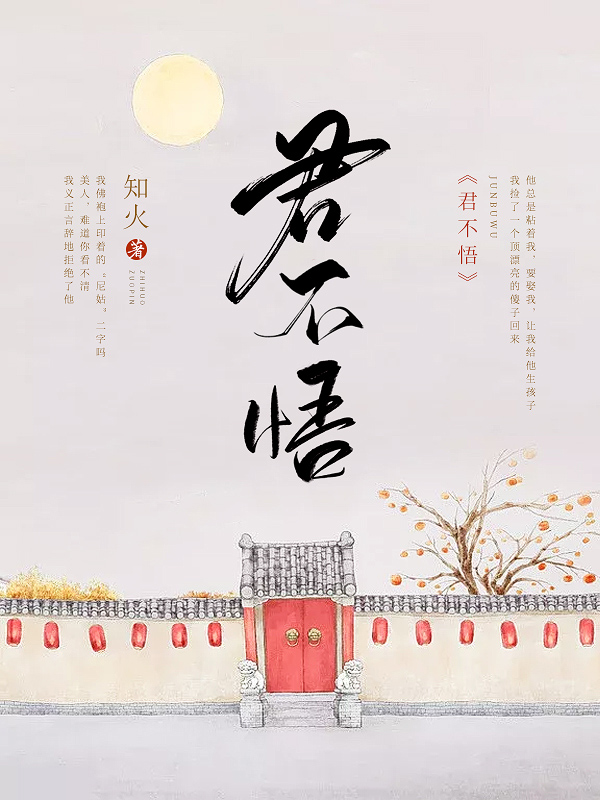 君不悟
《君不悟》
JUNBUWU
他总是粘着我，要娶我，让我给他生孩子
我捡了一个顶漂亮的傻子回来
知火
著
ZHIHUO
ZUOPIN
我佛袍上印着的“尼姑”二字吗
美人，难道你看不清
我义正言辞地拒绝了他